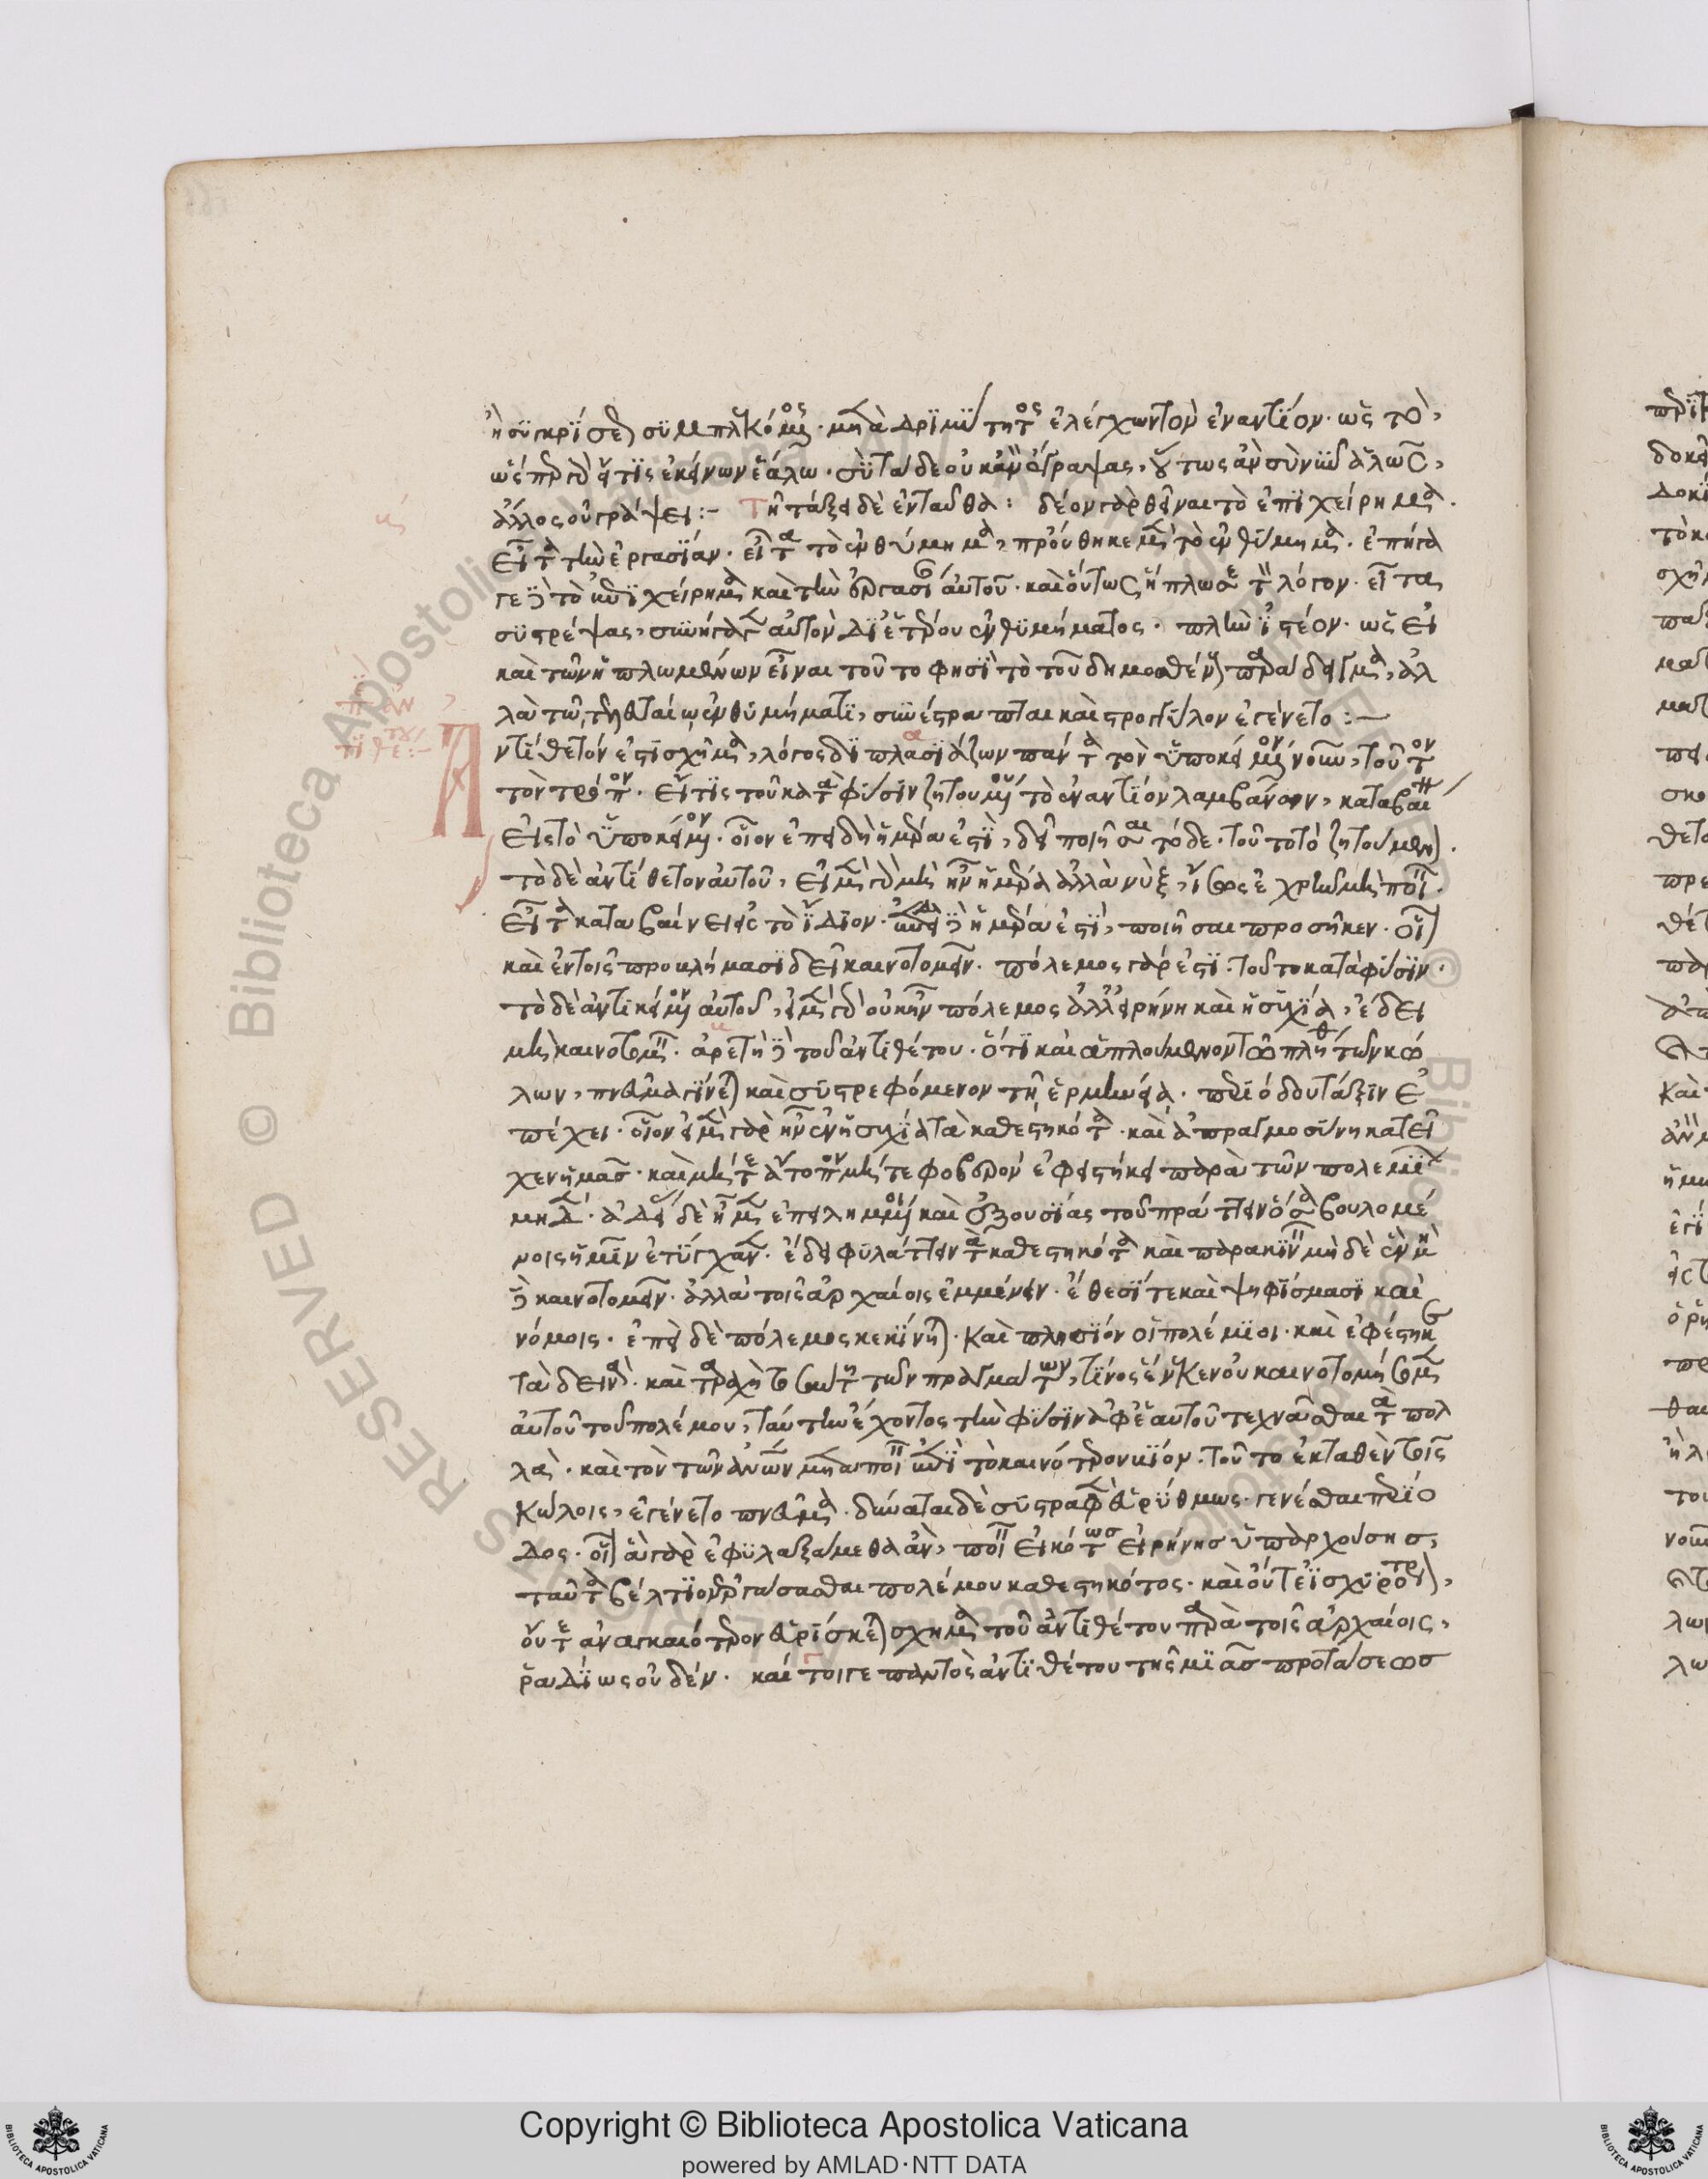 ἢ συγκρίσει συμπλεκόμενος. μετὰ δριμύτητος ἐλέγχων τὸν ἐναντίον. ὡς τὸ,
ὥσπερ γὰρ εἴ τις ἐκείνων ἑάλω. σὺ τάδε οὐκ ἂν ἔγραψας, οὕτως ἂν σὺ νῦν ἁλῶς,
ἄλλος οὐ γράψει:- Τῇ τάξει δὲ ἐνταῦθα: δέον γὰρ θεῖναι τὸ ἐπιχείρημα.
εἶτα τὴν ἐργασίαν. εἶτα τὸ ἐνθύμημα, προύθηκε μὲν τὸ ἐνθύμημα. ἐπήγα
γε δὲ τὸ ἐπιχείρημα καὶ τὴν ἐργασίαν αὐτοῦ. καὶ οὕτως ἥπλωσε τὸν λόγον. εἶτα
συστρέψας, συνήγαγεν αὐτὸν δι' ἑτέρου ἐνθυμήματος. πλὴν ἰστέον. ὡς εἰ
καὶ τῶν ἡπλωμένων εἶναι τοῦτο φησὶ τὸ τοῦ δημοσθένους παράδειγμα, ἀλ
λὰ τῷ τελευταίῳ ἐνθυμήματι, συνέστραπται καὶ στρογγύλον ἐγένετο:-
π(ερὶ) ἀν
τιθέτου:-
Ἀντίθετόν ἐστι σχῆμα, λόγος διπλασιάζων πάντα τὸν ὑποκείμενον νοῦν, τοῦτον
τὸν τρόπον. εἴ τις τοῦ κατὰ φύσιν ζητουμένου τὸ ἐναντίον λαμβάνων, καταβαίνει
εἰς τὸ ὑποκείμενον. οἷον ἐπειδὴ ἡμέρα ἐστὶ, δεῖ ποιῆσαι τόδε. τοῦτο τὸ ζητούμενον.
τὸ δὲ ἀντίθετον αὐτοῦ, εἰ μὲν γὰρ μὴ ἦν ἡμέρα ἀλλὰ νὺξ, ἴσως ἐχρῆν μὴ ποιεῖν.
εἶτα καταβαίνει εἰς τὸ ἴδιον. ἐπειδὴ δὲ ἡμέρα ἐστὶ, ποιῆσαι προσῆκεν. οἷον
καὶ ἐν τοῖς προβλήμασι δεῖ καινοτομεῖν. πόλεμος γάρ ἐστι. τοῦτο κατὰ φύσιν.
τὸ δὲ ἀντικείμενον αὐτοῦ, εἰ μὲν γὰρ οὐκ ἦν πόλεμος ἀλλ' εἰρήνη καὶ ἡσυχία, ἔδει
μὴ καινοτομεῖν. ἀρετὴ δὲ τοῦ ἀντιθέτου. ὅτι καὶ ἁπλούμενον τῷ πλήθει τῶν κώ
λων, πνεῦμα γίνεται καὶ συστρεφόμενον τῇ ἑρμηνείᾳ. περιόδου τάξιν ἐ
πέχει. οἷον εἰ μὲν γὰρ ἦν ἐν ἡσυχίᾳ τὰ καθεστηκότα. καὶ ἀπραγμοσύνη κατεῖ
χεν ἡμᾶς. καὶ μήτε ἄτοπον μήτε φοβερὸν ἐφειστήκει παρὰ τῶν πολεμίων
μηδέν. ἄδεια δὲ ἦν μὲν ἐπειλημμένοι καὶ ἐξουσίας τοῦ πράττειν ὅσα βουλομέ
νοις ἡμῖν ἐτύγχανεν. ἔδει φυλάττειν τὰ καθεστηκότα καὶ παρακινεῖν μηδὲ ἓν μὴ
δὲ καινοτομεῖν. ἀλλὰ τοῖς ἀρχαίοις ἐμμένειν. ἔθεσί τε καὶ ψηφίσμασι καὶ
νόμοις. ἐπεὶ δὲ πόλεμος κεκίνηται. καὶ πλησίον οἱ πολέμιοι. καὶ ἐφέστηκε
τὰ δεινά. καὶ ταραχὴ τοσαύτη τῶν πραγμάτων, τίνος ἕνεκεν οὐ καινοτομήσομεν
αὐτοῦ τοῦ πολέμου, ταύτην ἔχοντος τὴν φύσιν ἀφ' ἑαυτοῦ τεχνᾶσθαι τὰ πολ
λά. καὶ τὸν τῶν ἀνθρώπων μεταποιεῖν ἐπὶ τὸ καινότερον βίον. τοῦτο ἐκταθὲν τοῖς
κώλοις, ἐγένετο πνεῦμα. δύναται δὲ συστραφὲν εὐρύθμως. γενέσθαι περίο
δος. οἷον ἃ γὰρ ἐφυλαξάμεθα ἂν, ποιεῖν εἰκότως εἰρήνης ὑπαρχούσης,
ταῦτα βέλτιον ἐργάσασθαι πολέμου καθεστηκότος. καὶ οὔτε ἰσχυρότερον,
οὔτε ἀναγκαιότερον εὑρίσκεται σχῆμα τοῦ ἀντιθέτου παρὰ τοῖς ἀρχαίοις,
ῥᾳδίως οὐδέν. καίτοιγε παντὸς ἀντιθέτου τῆς μιᾶς προτάσεως
Copyright © Biblioteca Apostolica Vaticana
powered by AMLAD·NTT DATA